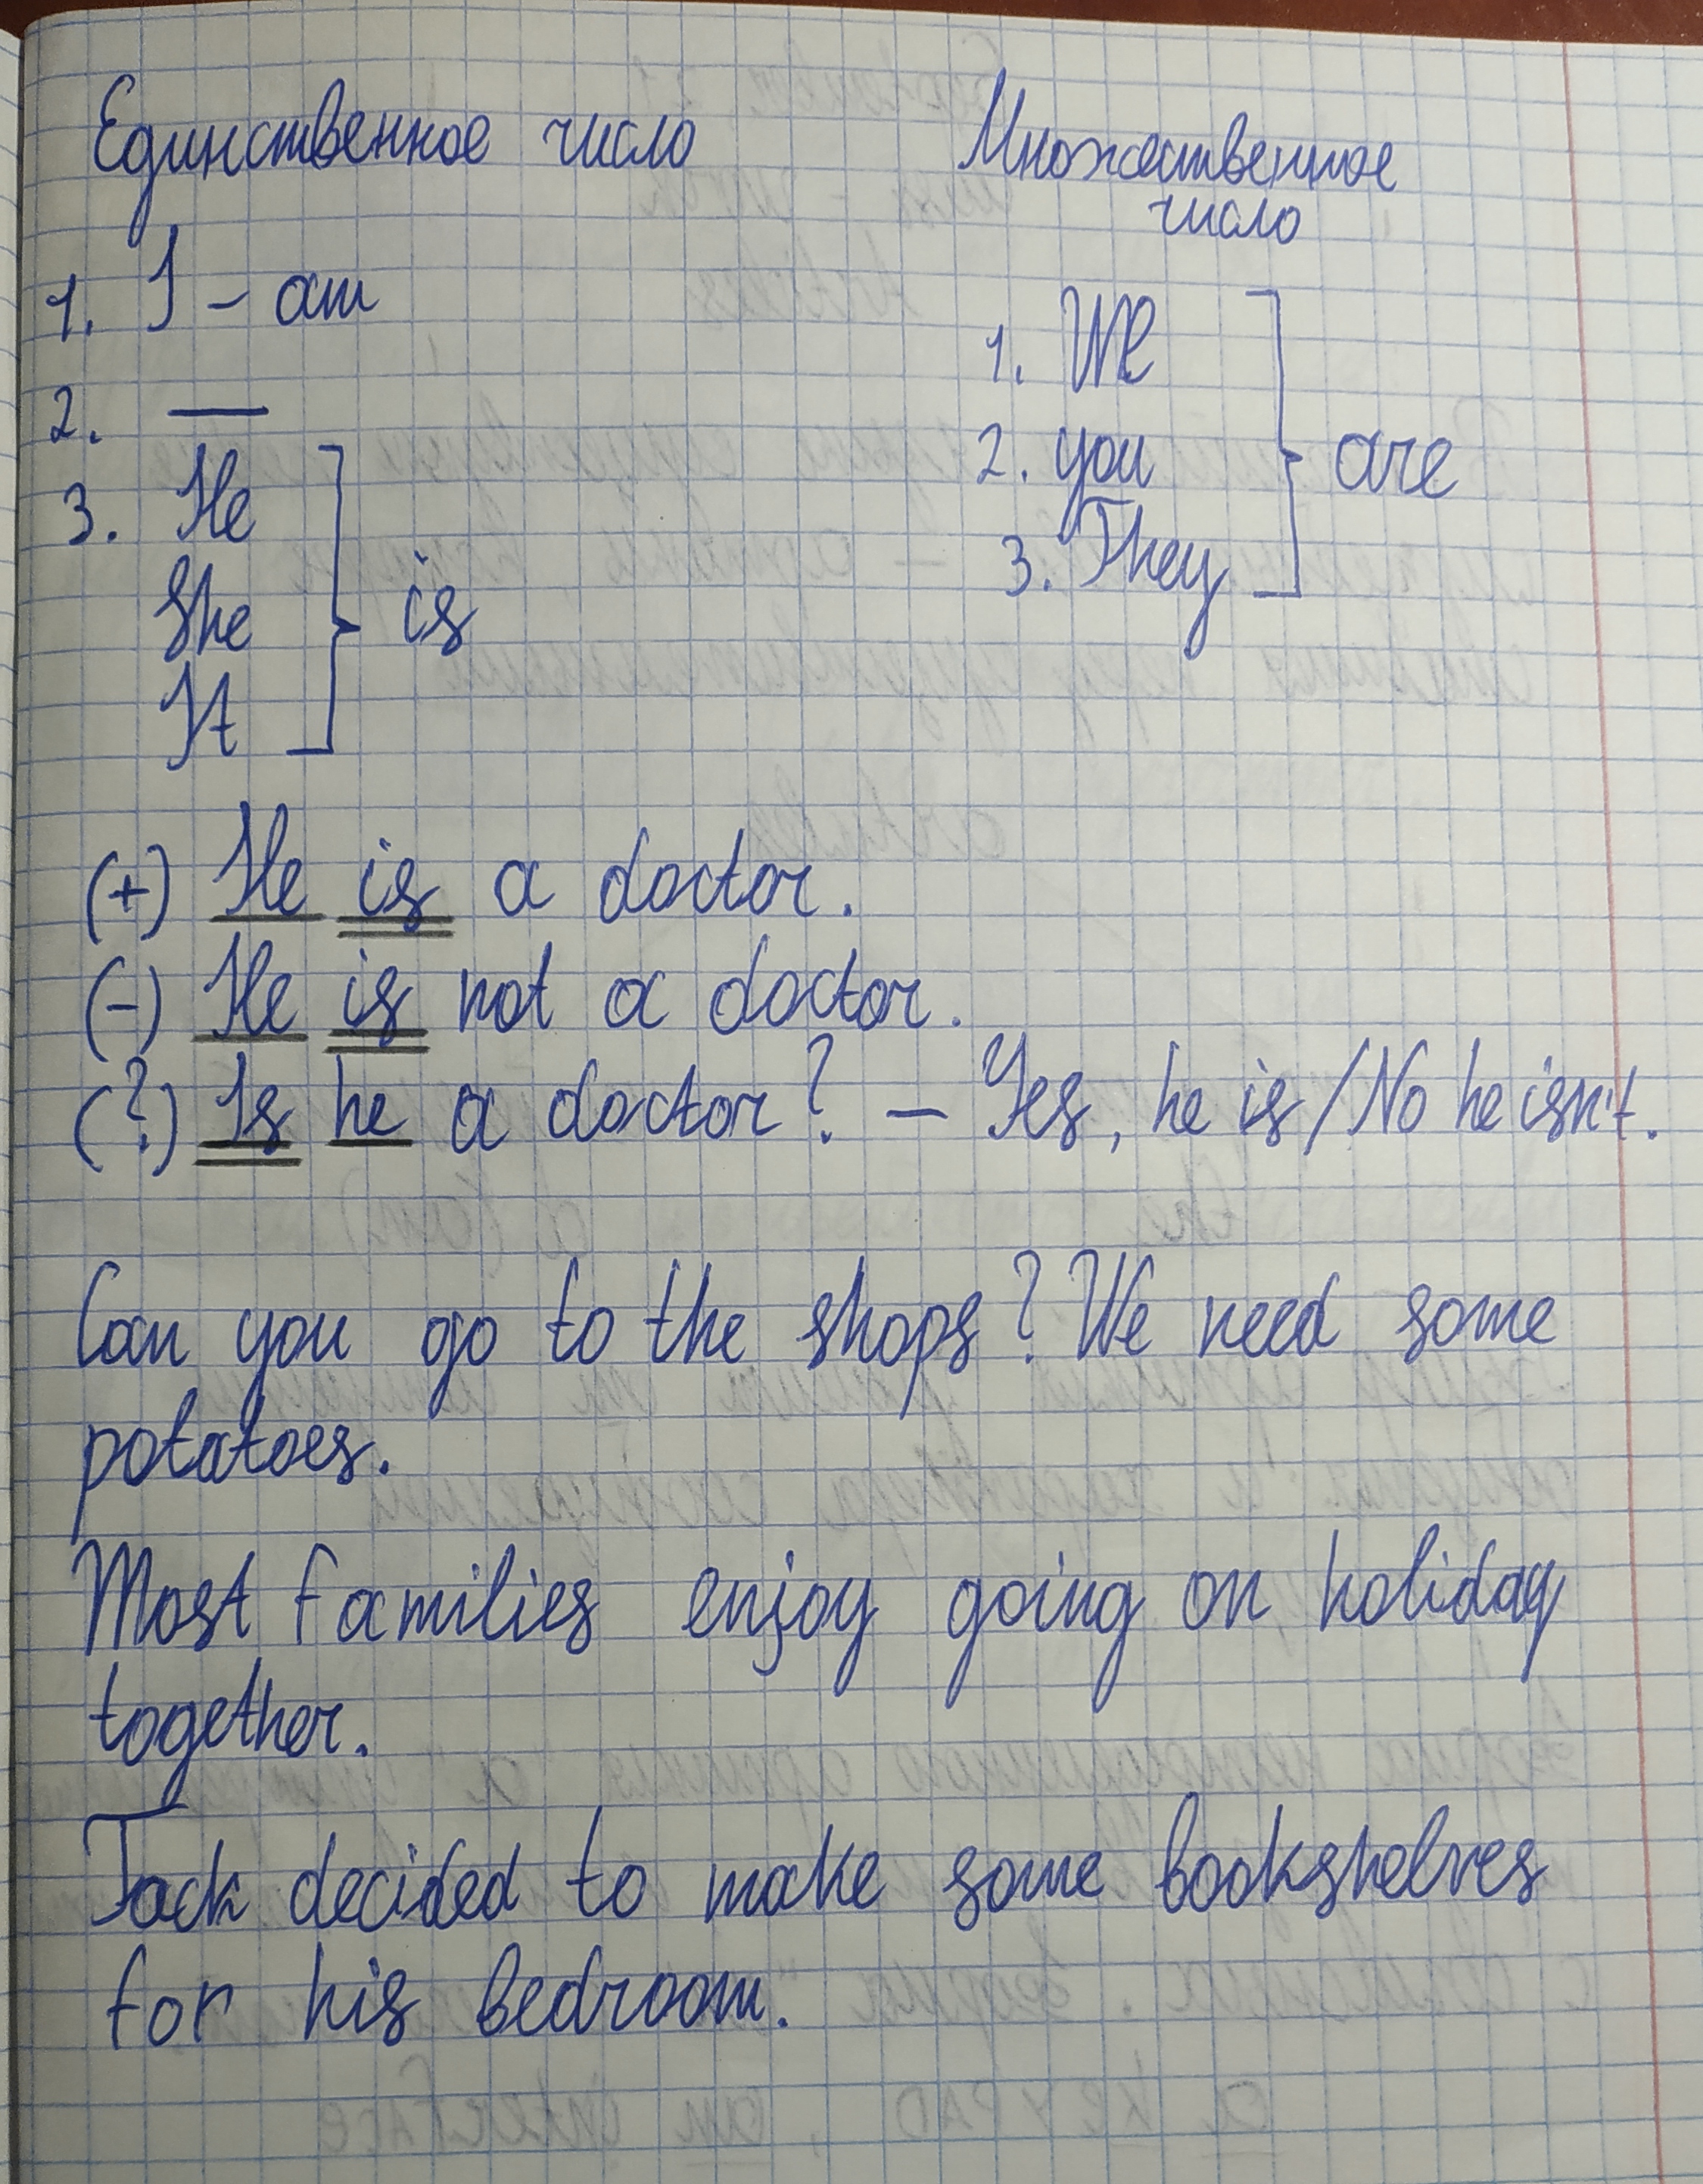 Единственное число
1. I – am
2. —
3. He
She
It
is
Множественное
число
1. We
2. you
3. They
are
(+) He is a doctor.
(-) He is not a doctor.
(?) Is he a doctor? – Yes, he is / No he isn't.
Can you go to the shops? We need some
potatoes.
Most families enjoy going on holiday
together.
Jack decided to make some bookshelves
for his bedroom.